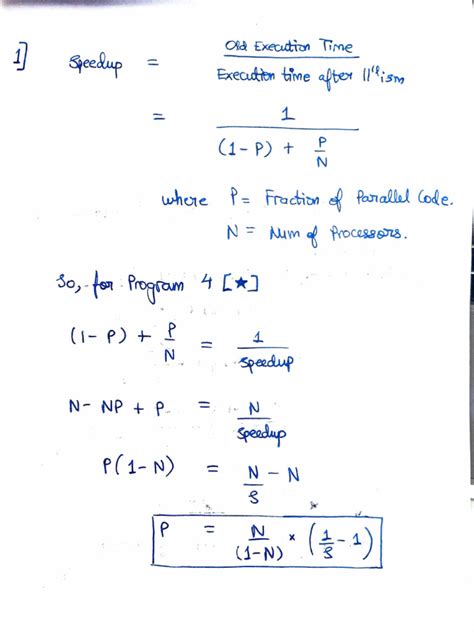 1] Speedup = Old Execution Time / Execution time after 11'lism
= 1 / ((1-P) + P/N)
where P = Fraction of Parallel Code.
N = Num of Processors.
So, for Program 4 [★]
(1-P) + P/N = 1/Speedup
N - NP + P = N/Speedup
P(1-N) = N/S - N
P = N/(1-N) × (1/S - 1)